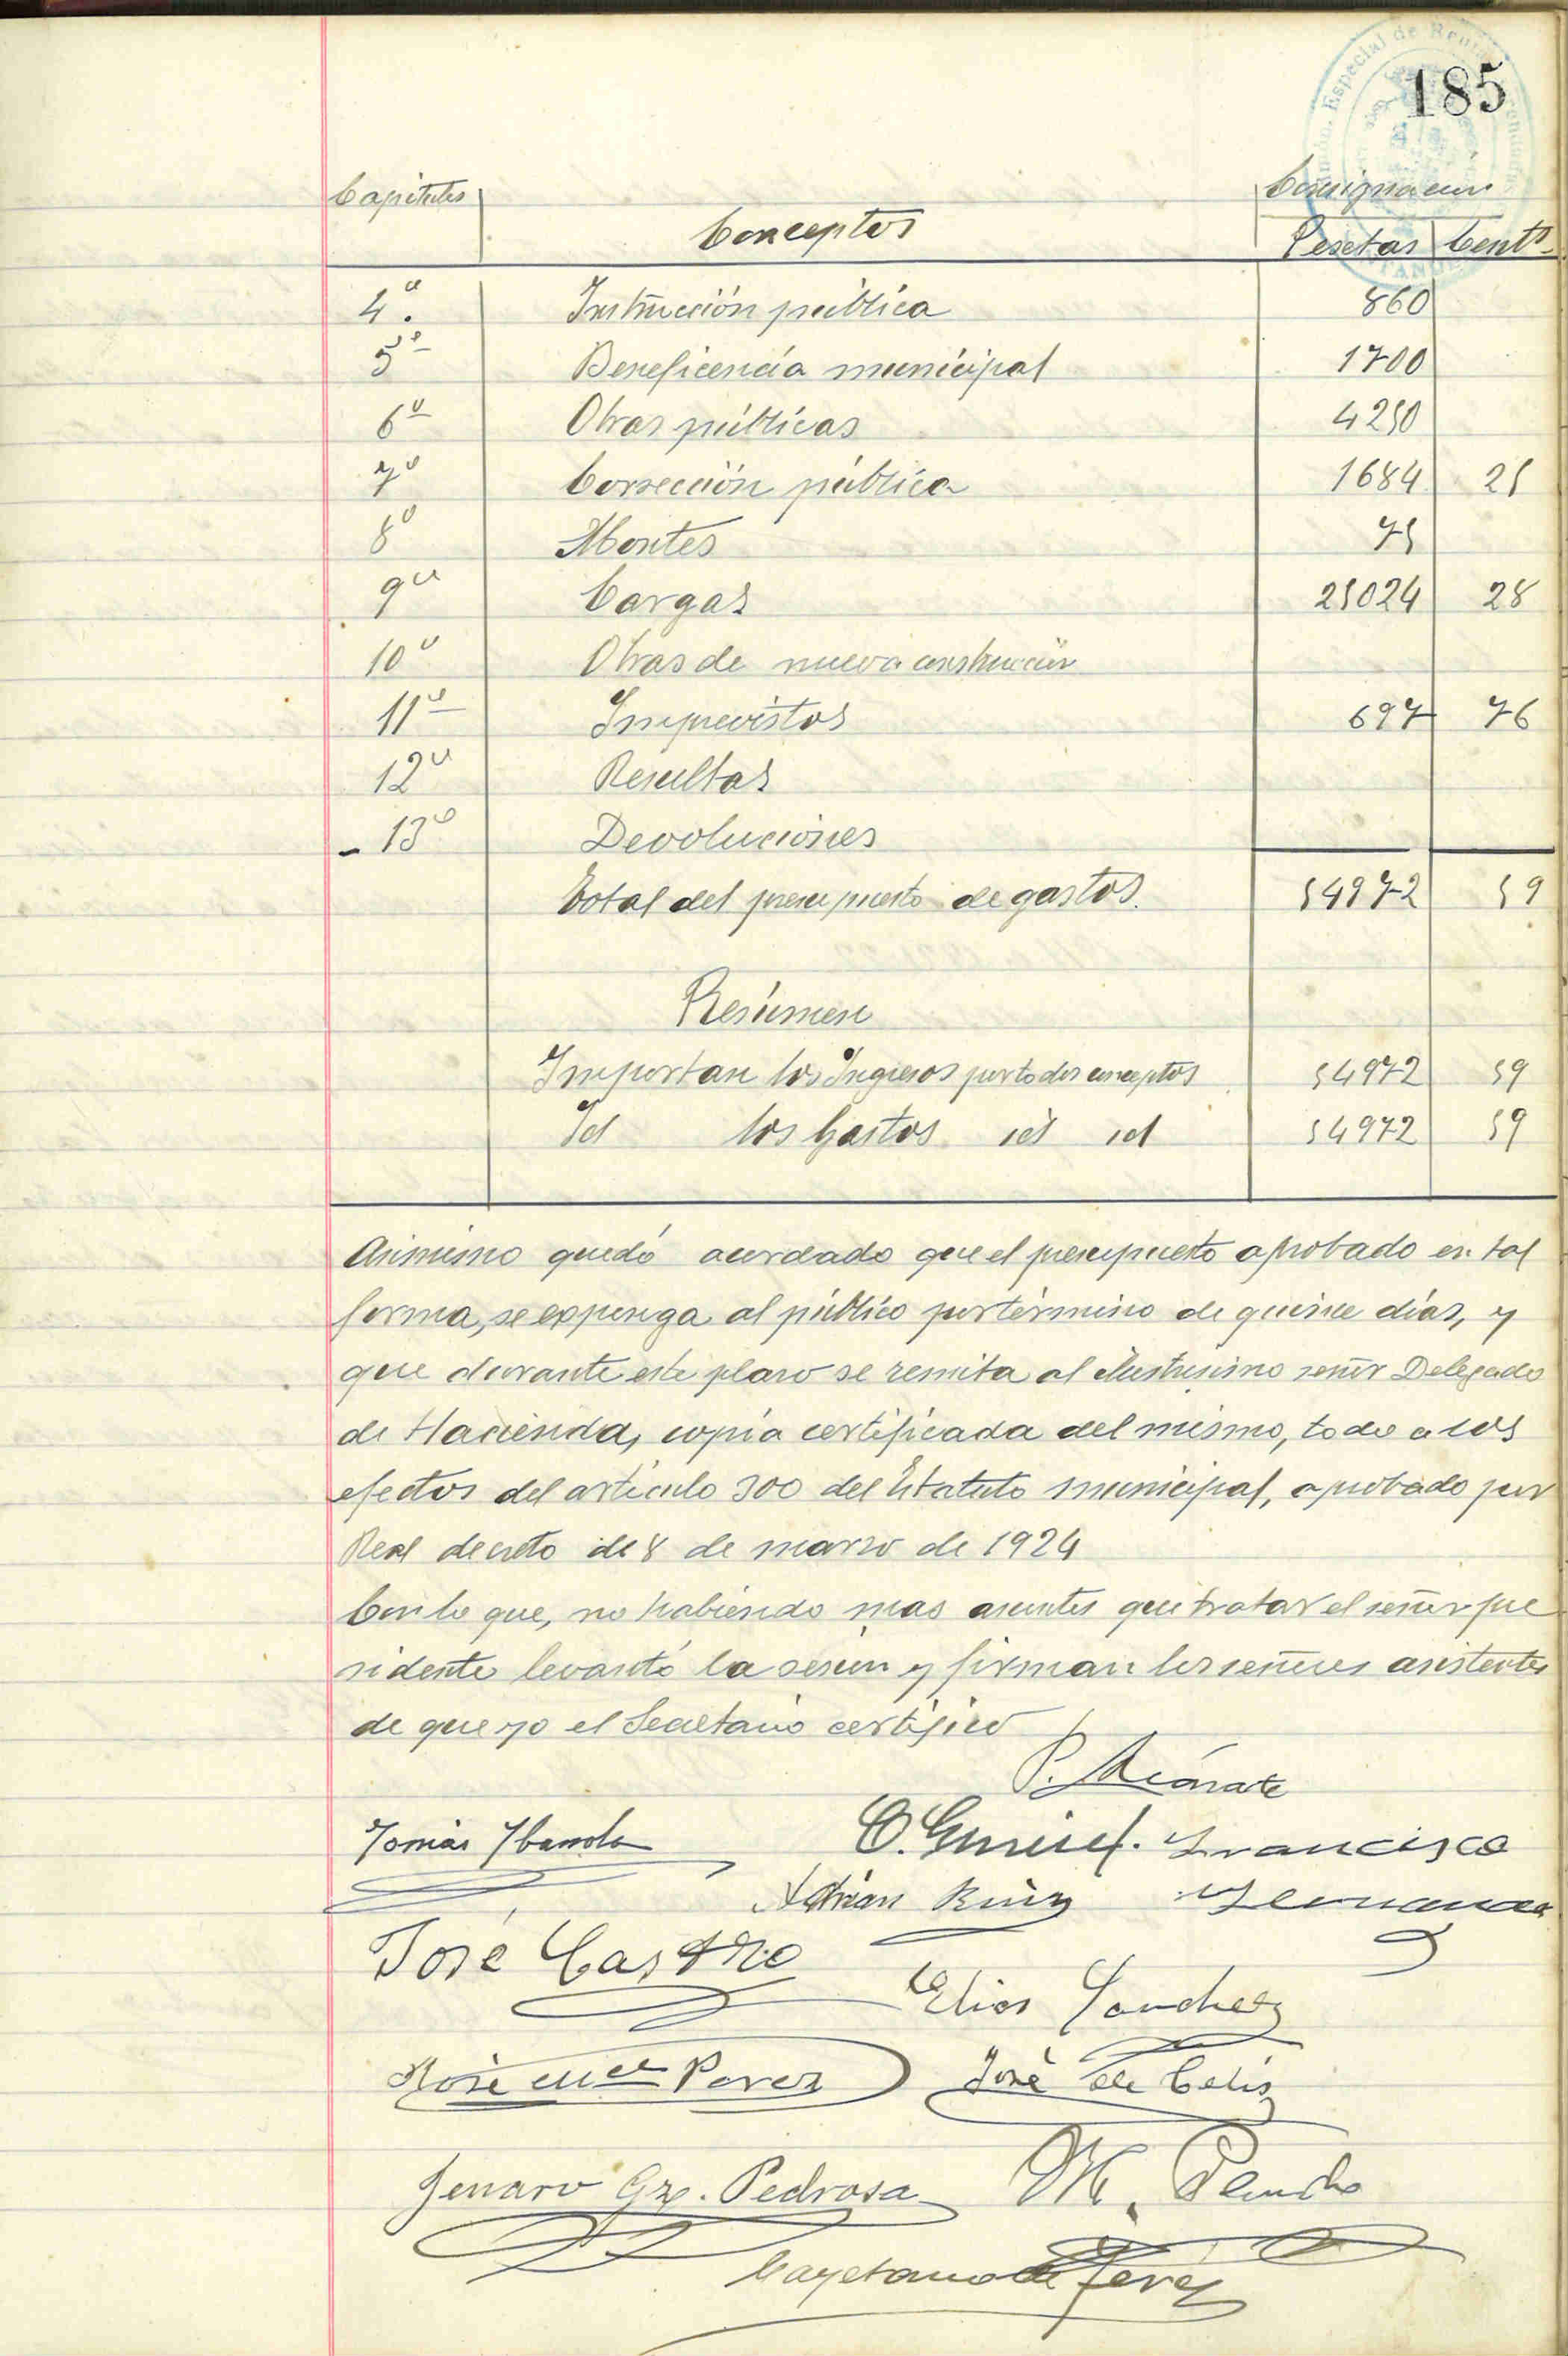 185
Capítulos Conceptos Consignación
Pesetas Cents
4º. Instrucción pública 860
5º Beneficencia municipal 1700
6º Obras públicas 4250
7º Corrección pública 1684 25
8º Montes 75
9º Cargas 25024 28
10º Obras de nueva construcción
11º Imprevistos 697 76
12º Resultas
13º Devoluciones
Total del presupuesto de gastos. 54972 59
Resúmen
Importan los Ingresos por todos conceptos 54972 59
Id los Gastos id id 54972 59
Asimismo quedó acordado que el presupuesto aprobado en tal
forma, se exponga al público por término de quince días, y
que durante este plazo se remita al ilustrísimo señor Delegado
de Hacienda, copia certificada del mismo, todo a los
efectos del artículo 300 del Estatuto municipal, aprobado por
Real decreto de 8 de marzo de 1924
Con lo que, no habiendo mas asuntos que tratar el señor pre
sidente levantó la sesión y firman los señores asistentes
de que yo el Secretario certifico
P.
Tomás O. Francisco
Adrian Ruiz
José Castro
Elias Sanchez
José Mel Perez José de Celis
Jenaro Gz. Pedrosa M.
Cayetano de